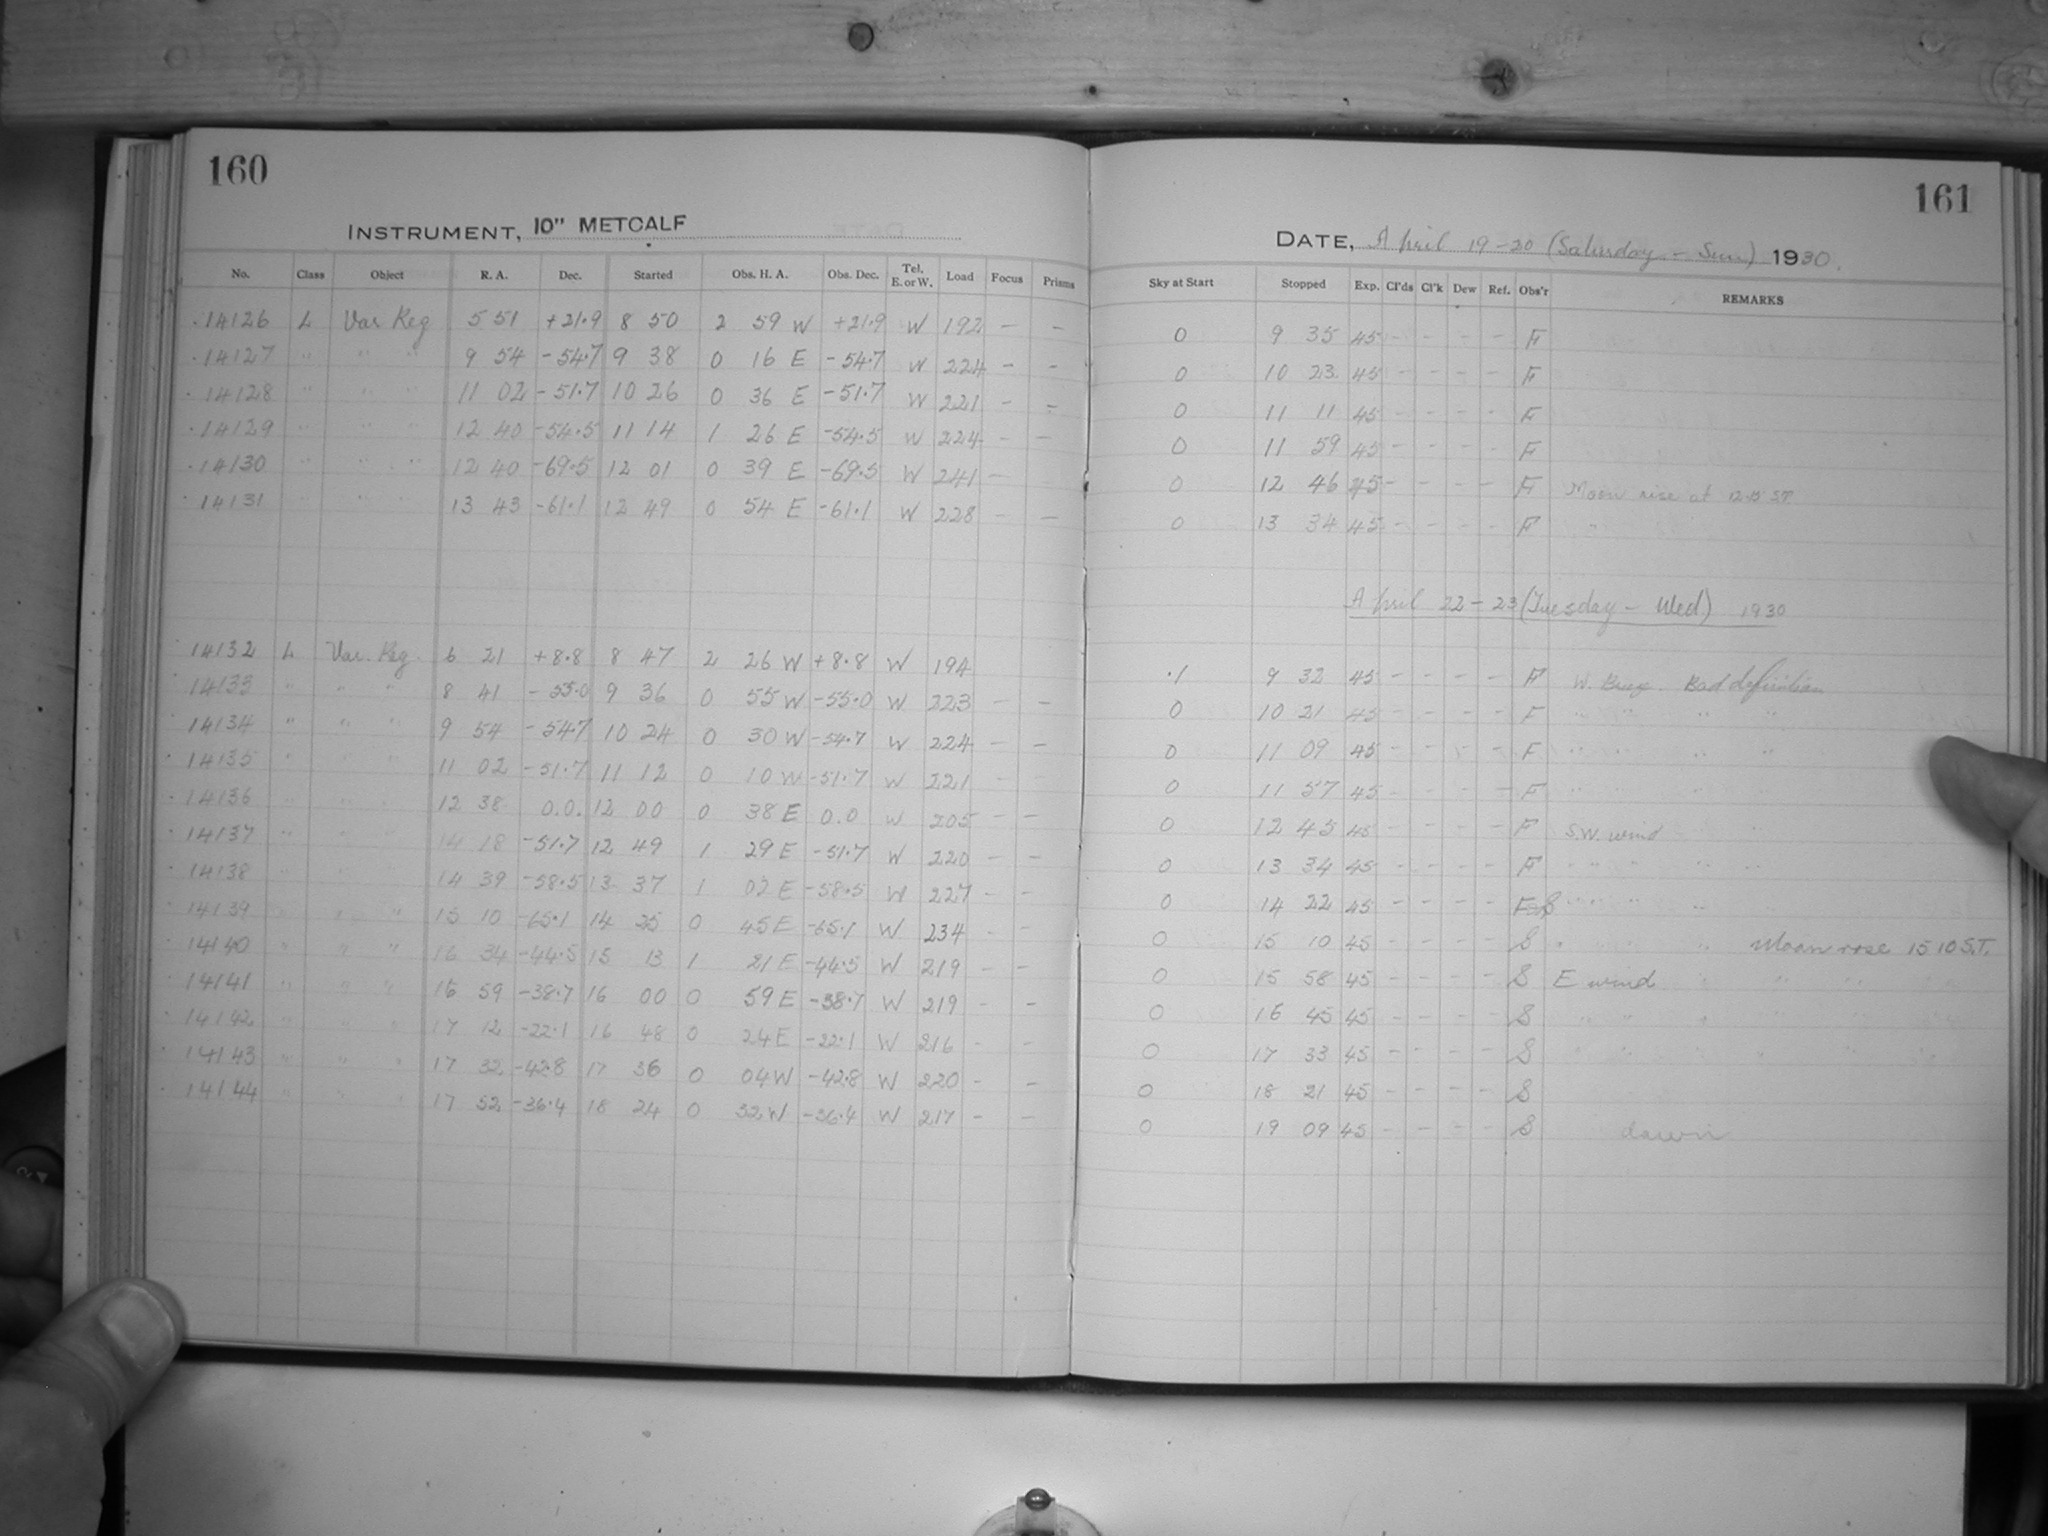 160
INSTRUMENT, 10" METCALF
No. Class Object R. A. Dec. Started Obs. H. A. Obs. Dec. Tel. E. or W. Load Focus Prisms
14126 L Var Reg 5 51 +21.9 8 50 2 59 W +21.9 W 192 — —
14127 " " " 9 54 -54.7 9 38 0 16 E -54.7 W 224 — —
14128 " " " 11 02 -51.7 10 26 0 36 E -51.7 W 221 — —
14129 " " " 12 40 -54.5 11 14 1 26 E -54.5 W 224 — —
14130 " " " 12 40 -69.5 12 01 0 39 E -69.5 W 241 —
14131 " " " 13 43 -61.1 12 49 0 54 E -61.1 W 228 — —
14132 L Var. Reg. 6 21 +8.8 8 47 2 26 W +8.8 W 194
14133 " " " 8 41 -55.0 9 36 0 55 W -55.0 W 223 — —
14134 " " " 9 54 -54.7 10 24 0 30 W -54.7 W 224 — —
14135 " " " 11 02 -51.7 11 12 0 10 W -51.7 W 221 —
14136 " " " 12 38 0.0. 12 00 0 38 E 0.0 W 205 — —
14137 " " " 14 18 -51.7 12 49 1 29 E -51.7 W 220 — —
14138 " " " 14 39 -58.5 13 37 1 02 E -58.5 W 227 — —
14139 " " " 15 10 -65.1 14 25 0 45 E -65.1 W 234 — —
14140 " " " 16 34 -44.5 15 13 1 21 E -44.5 W 219 — —
14141 " " " 16 59 -38.7 16 00 0 59 E -38.7 W 219 — —
14142 " " " 17 12 -22.1 16 48 0 24 E -22.1 W 216 — —
14143 " " " 17 32 -42.8 17 36 0 04 W -42.8 W 220 — —
14144 " " " 17 52 -36.4 18 24 0 32 W -36.4 W 217 — —
161
DATE, April 19-20 (Saturday - Sun) 1930.
Sky at Start Stopped Exp. Cl'ds Cl'k Dew Ref. Obs'r REMARKS
0 9 35 45 - - - - F
0 10 23 45 - - - - F
0 11 11 45 - - - - F
0 11 59 45 - - - - F
0 12 46 45 - - - - F Moon rise at 12.15 ST
0 13 34 45 - - - - F "
April 22-23 (Tuesday - Wed) 1930
.1 9 32 45 - - - - F W. Bad definition
0 10 21 45 - - - - F " " " "
0 11 09 45 - - - - F " " " "
0 11 57 45 - - - - F " " " "
0 12 45 45 - - - - F S.W. wind
0 13 34 45 - - - - F " " " "
0 14 22 45 - - - - F S " " " "
0 15 10 45 - - - - S " " " " Moon rose 15 10 S.T.
0 15 58 45 - - - - S E wind " " " "
0 16 45 45 - - - - S " " " "
0 17 33 45 - - - - S " " " " " "
0 18 21 45 - - - - S
0 19 09 45 - - - - S dawn